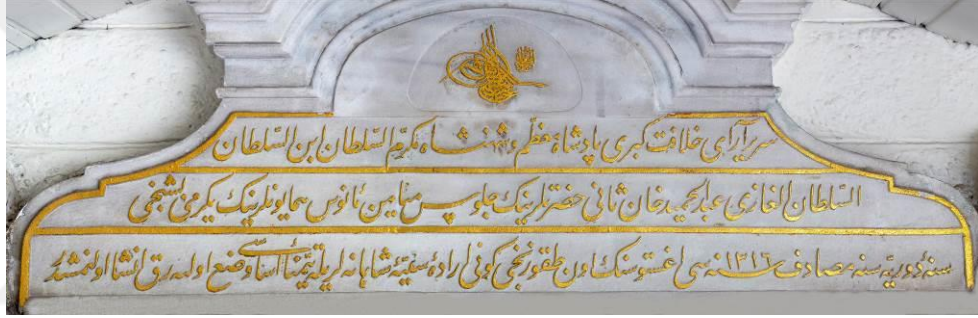 سریرآرای خلافت کبری پادشاه معظم و شهنشاه مکرم السلطان ابن السلطان
السلطان الغازی عبدالحمید خان ثانی حضرتلرینك جلوس میامن مأنوس همایونلرینك یکرمی بشنجی
سنهٔ دوریه سنه مصادف ١٣١٦ سنه سی اغستوسنك اون طقوزنجی کونی ارادهٔ سنیهٔ شاهانه لریله تیمنا اساسی وضع اولنه رق انشا اولنمشدر